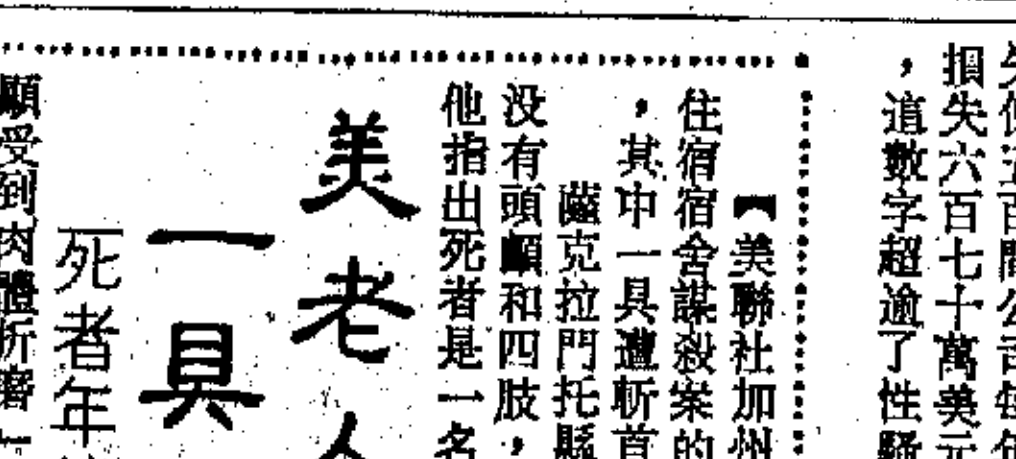 損失六百七十萬美元
，這數字超逾了性騷
【美聯社加州
住宿宿舍謀殺案的
，其中一具遭斬首
薩克拉門托縣
没有頭顱和四肢，
他指出死者是一名
美老人
一具
死者年
顯受到肉體折磨